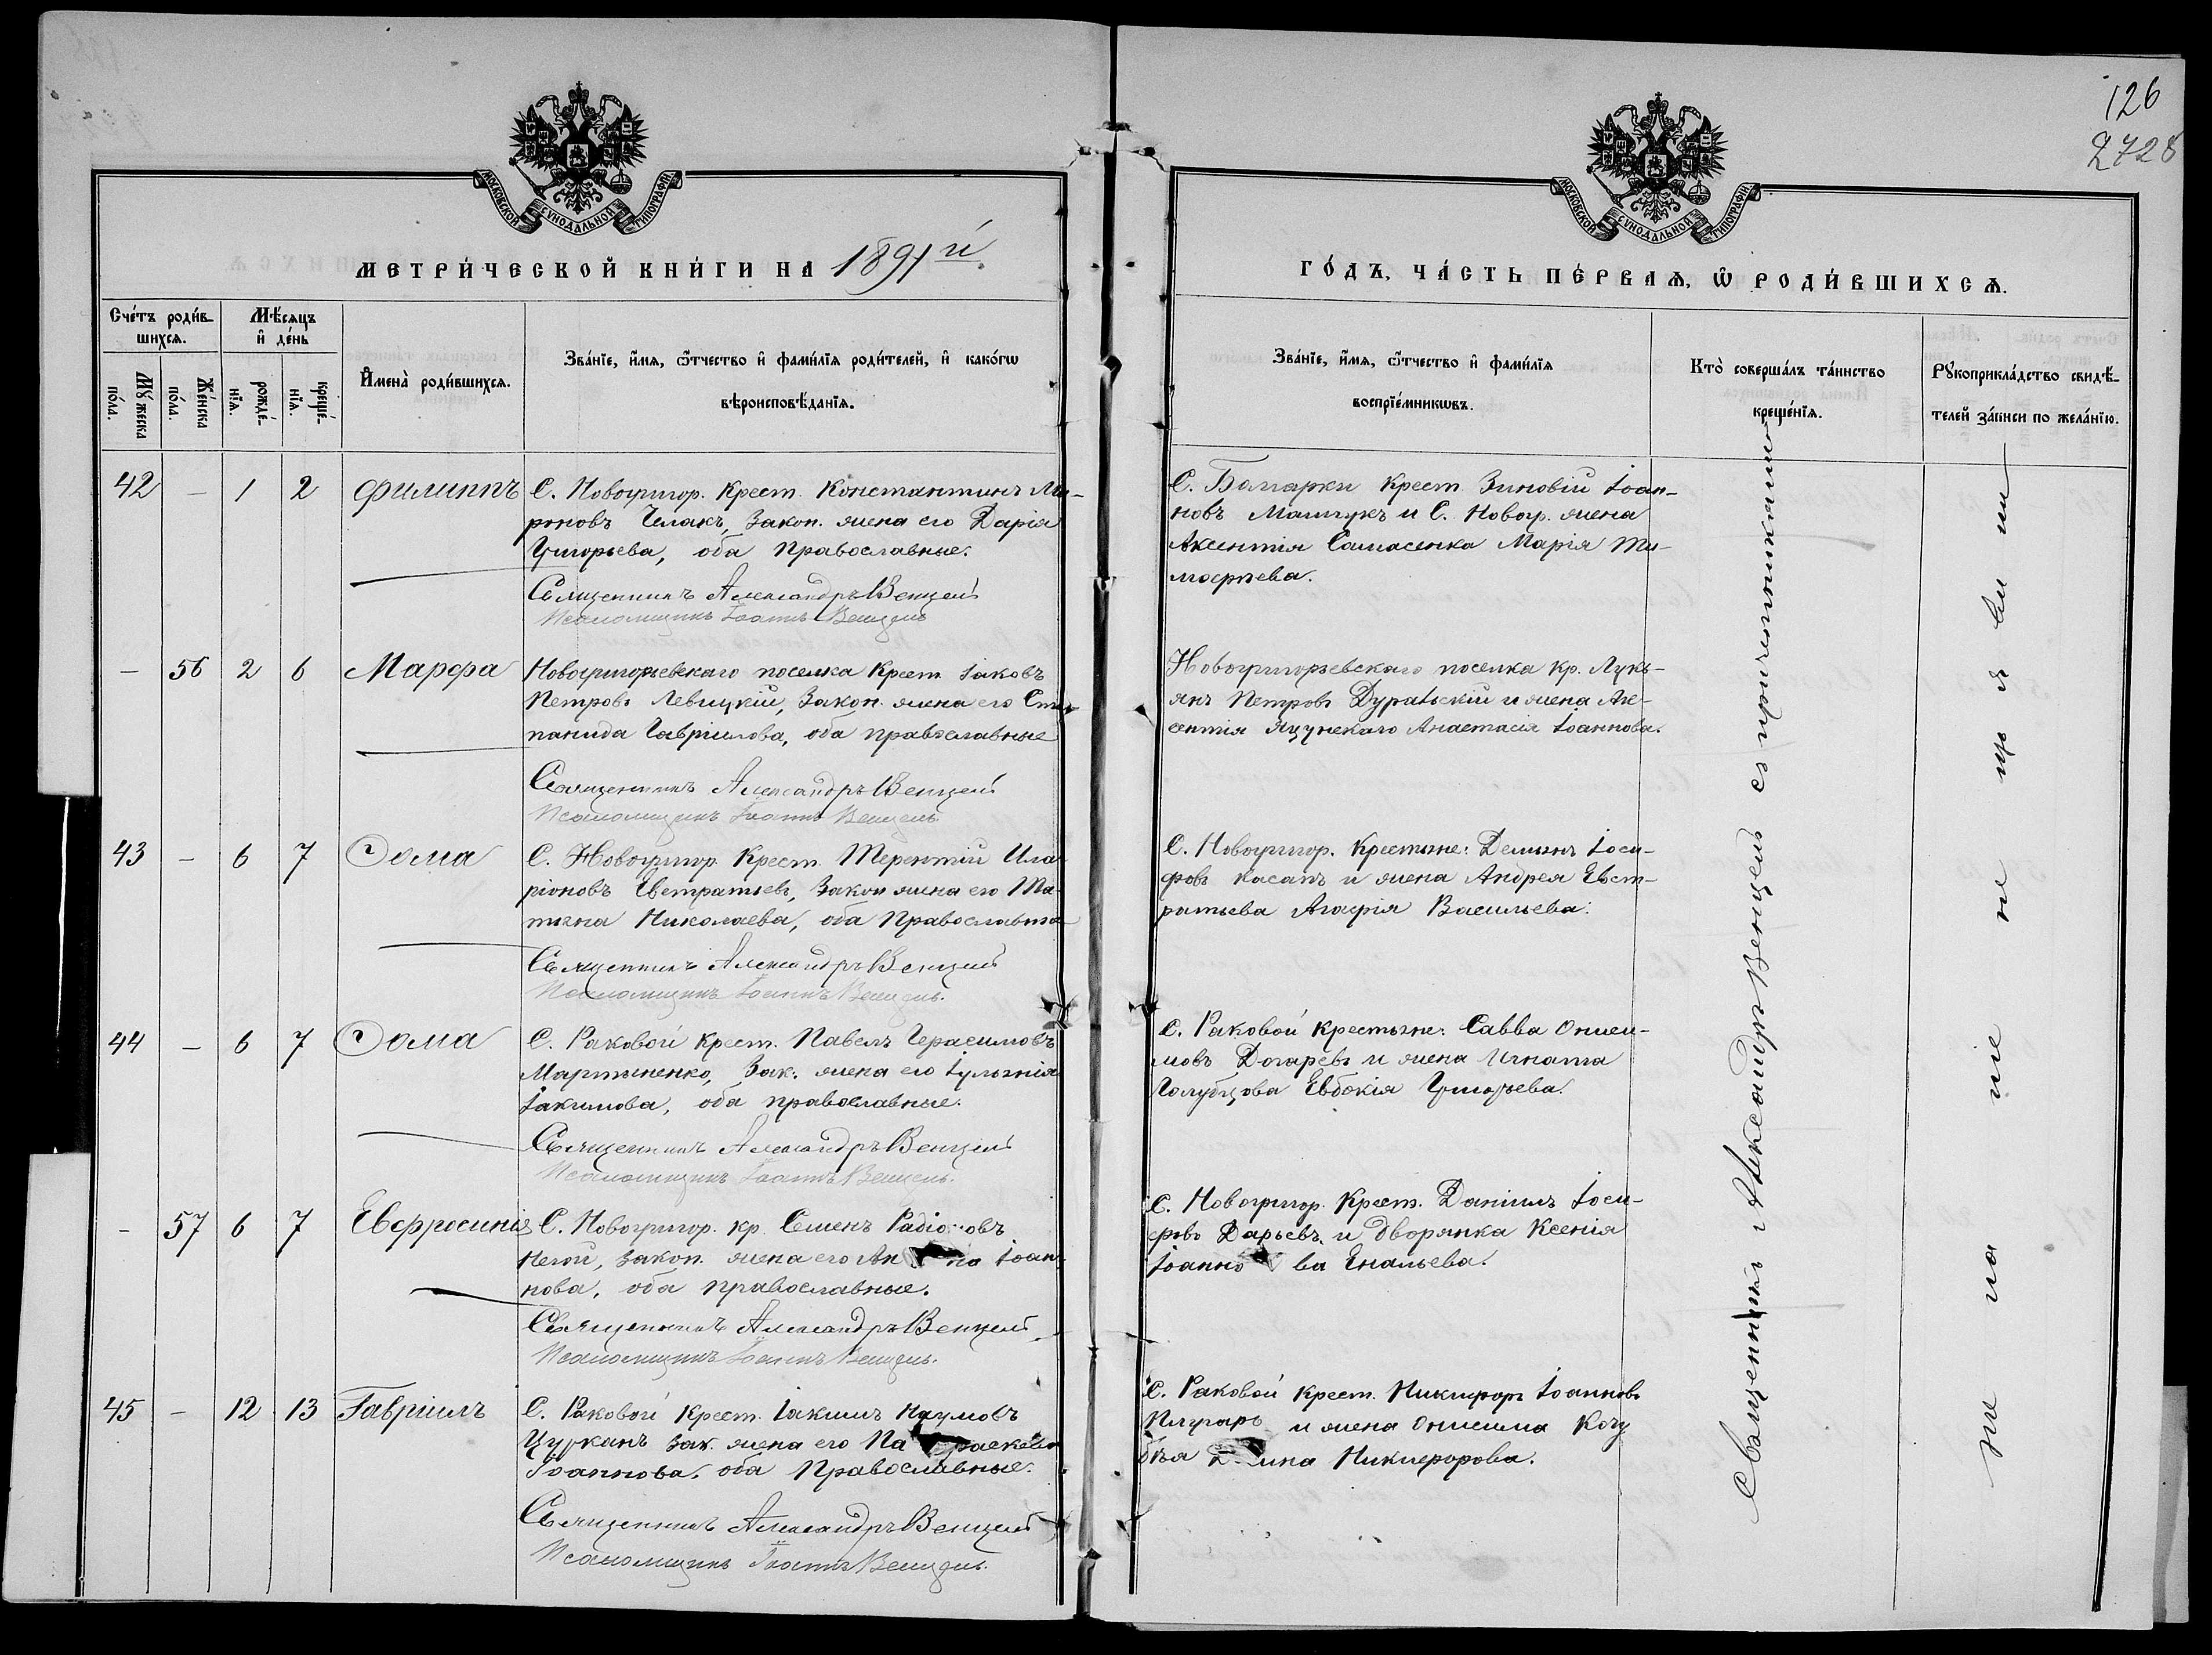 126
2728
МОСКОВСКОЙ СѴНОДАЛЬНОЙ ТИПОГРАФІИ
МОСКОВСКОЙ СѴНОДАЛЬНОЙ ТИПОГРАФІИ
МЕТРИ́ЧЕСКОЙ КНИ́ГИ НА 1891й.
ГО́ДЪ, ЧА́СТЬ ПЕ́РВАѦ, Ѽ РОДИ́ВШИХСѦ.
Сче́тъ роди́в-
шихсѧ.
Мѣ́сяцъ
и҆ де́нь
Мꙋжеска
по́ла.
Же́нска
по́ла.
рожде́-
нїѧ.
креще́-
нїѧ.
И҆мена̀ роди́вшихсѧ.
Зва́нїе, и҆́мѧ, ѻ҆́тчество и҆ фами́лїѧ роди́телей, и҆ како́гѡ
вѣроисповѣ́данїѧ.
Зва́нїе, и҆́мѧ, ѻ҆́тчество и҆ фами́лїѧ
воспрїе́мникѡвъ.
Кто̀ соверша́лъ та́инство
креще́нїѧ.
Рꙋкоприкла́дство свидѣ́-
телей за́писи по жела́нїю.
42 - 1 2 Филиппъ С. Новогригор. Крест. Константинъ Ми-
роновъ Челакъ, Закон. жена его Дарія
Григорьева, оба Православные.
Священникъ Александръ Венцель
Псаломщикъ Іоаннъ Венцель
С. Болгарки Крест. Зиновій Іоан-
новъ Машчукъ и С. Новогр. жена
Аксентія Самасенка Марія Ти-
мофѣева.
- 56 2 6 Марфа Новогригорьевскаго поселка Крест. Іаковъ
Петровъ Левицкій, Закон. жена его Сте-
панида Гавріилова, оба православные
Священникъ Александръ Венцель
Псаломщикъ Іоаннъ Венцель
Новогригорьевскаго поселка кр. Лукь-
янъ Петровъ Дуратскій и жена Ак-
сентія Яцунскаго Анастасія Іоаннова.
43 - 6 7 Ѳома С. Новогригор. Крест. Терентій Ила-
ріоновъ Евстратьевъ, Закон жена его Та-
тьяна Николаева, оба Православные
Священникъ Александръ Венцель
Псаломщикъ Іоаннъ Венцель.
С. Новогригор. Крестьяне: Демьянъ Іоси-
фовъ Касапъ и жена Андрея Евст-
ратьева Агафія Васильева.
44 - 6 7 Ѳома С. Раковой Крест. Павелъ Герасимовъ
Мартыненко, Зак. жена его Іульянія
Іакимова, оба православные.
Священникъ Александръ Венцель
Псаломщикъ Іоаннъ Венцель.
С. Раковой крестьяне: Савва Ониси-
мовъ Догаревъ и жена Игната
Голубцова Евдокія Григорьева.
- 57 6 7 Евфросинія С. Новогригор. кр. Семенъ Радіоновъ
закон. жена его Іоан-
нова, оба православные.
Священникъ Александръ Венцель
Псаломщикъ Іоаннъ Венцель.
С. Новогригор. Крест. Даніилъ Іоси-
фовъ Дарьевъ и дворянка Ксенія
Іоаннова Енальева.
45 - 12 13 Гавріилъ С. Раковой Крест. Іакимъ Наумовъ
Цурканъ зак. жена его Параскева
Іоаннова, оба Православные.
Священникъ Александръ Венцель
Псаломщикъ Іоаннъ Венцель.
С. Раковой крест. Никифоръ Іоанновъ
Плугаръ и жена Онисима Кочу
бѣя Никифорова.
Священникъ Александръ Венцель съ причетниками